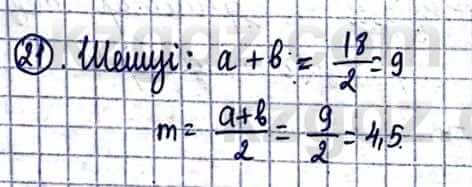 21. Шешуі: a + b = 18/2 = 9
m = a+b/2 = 9/2 = 4,5.